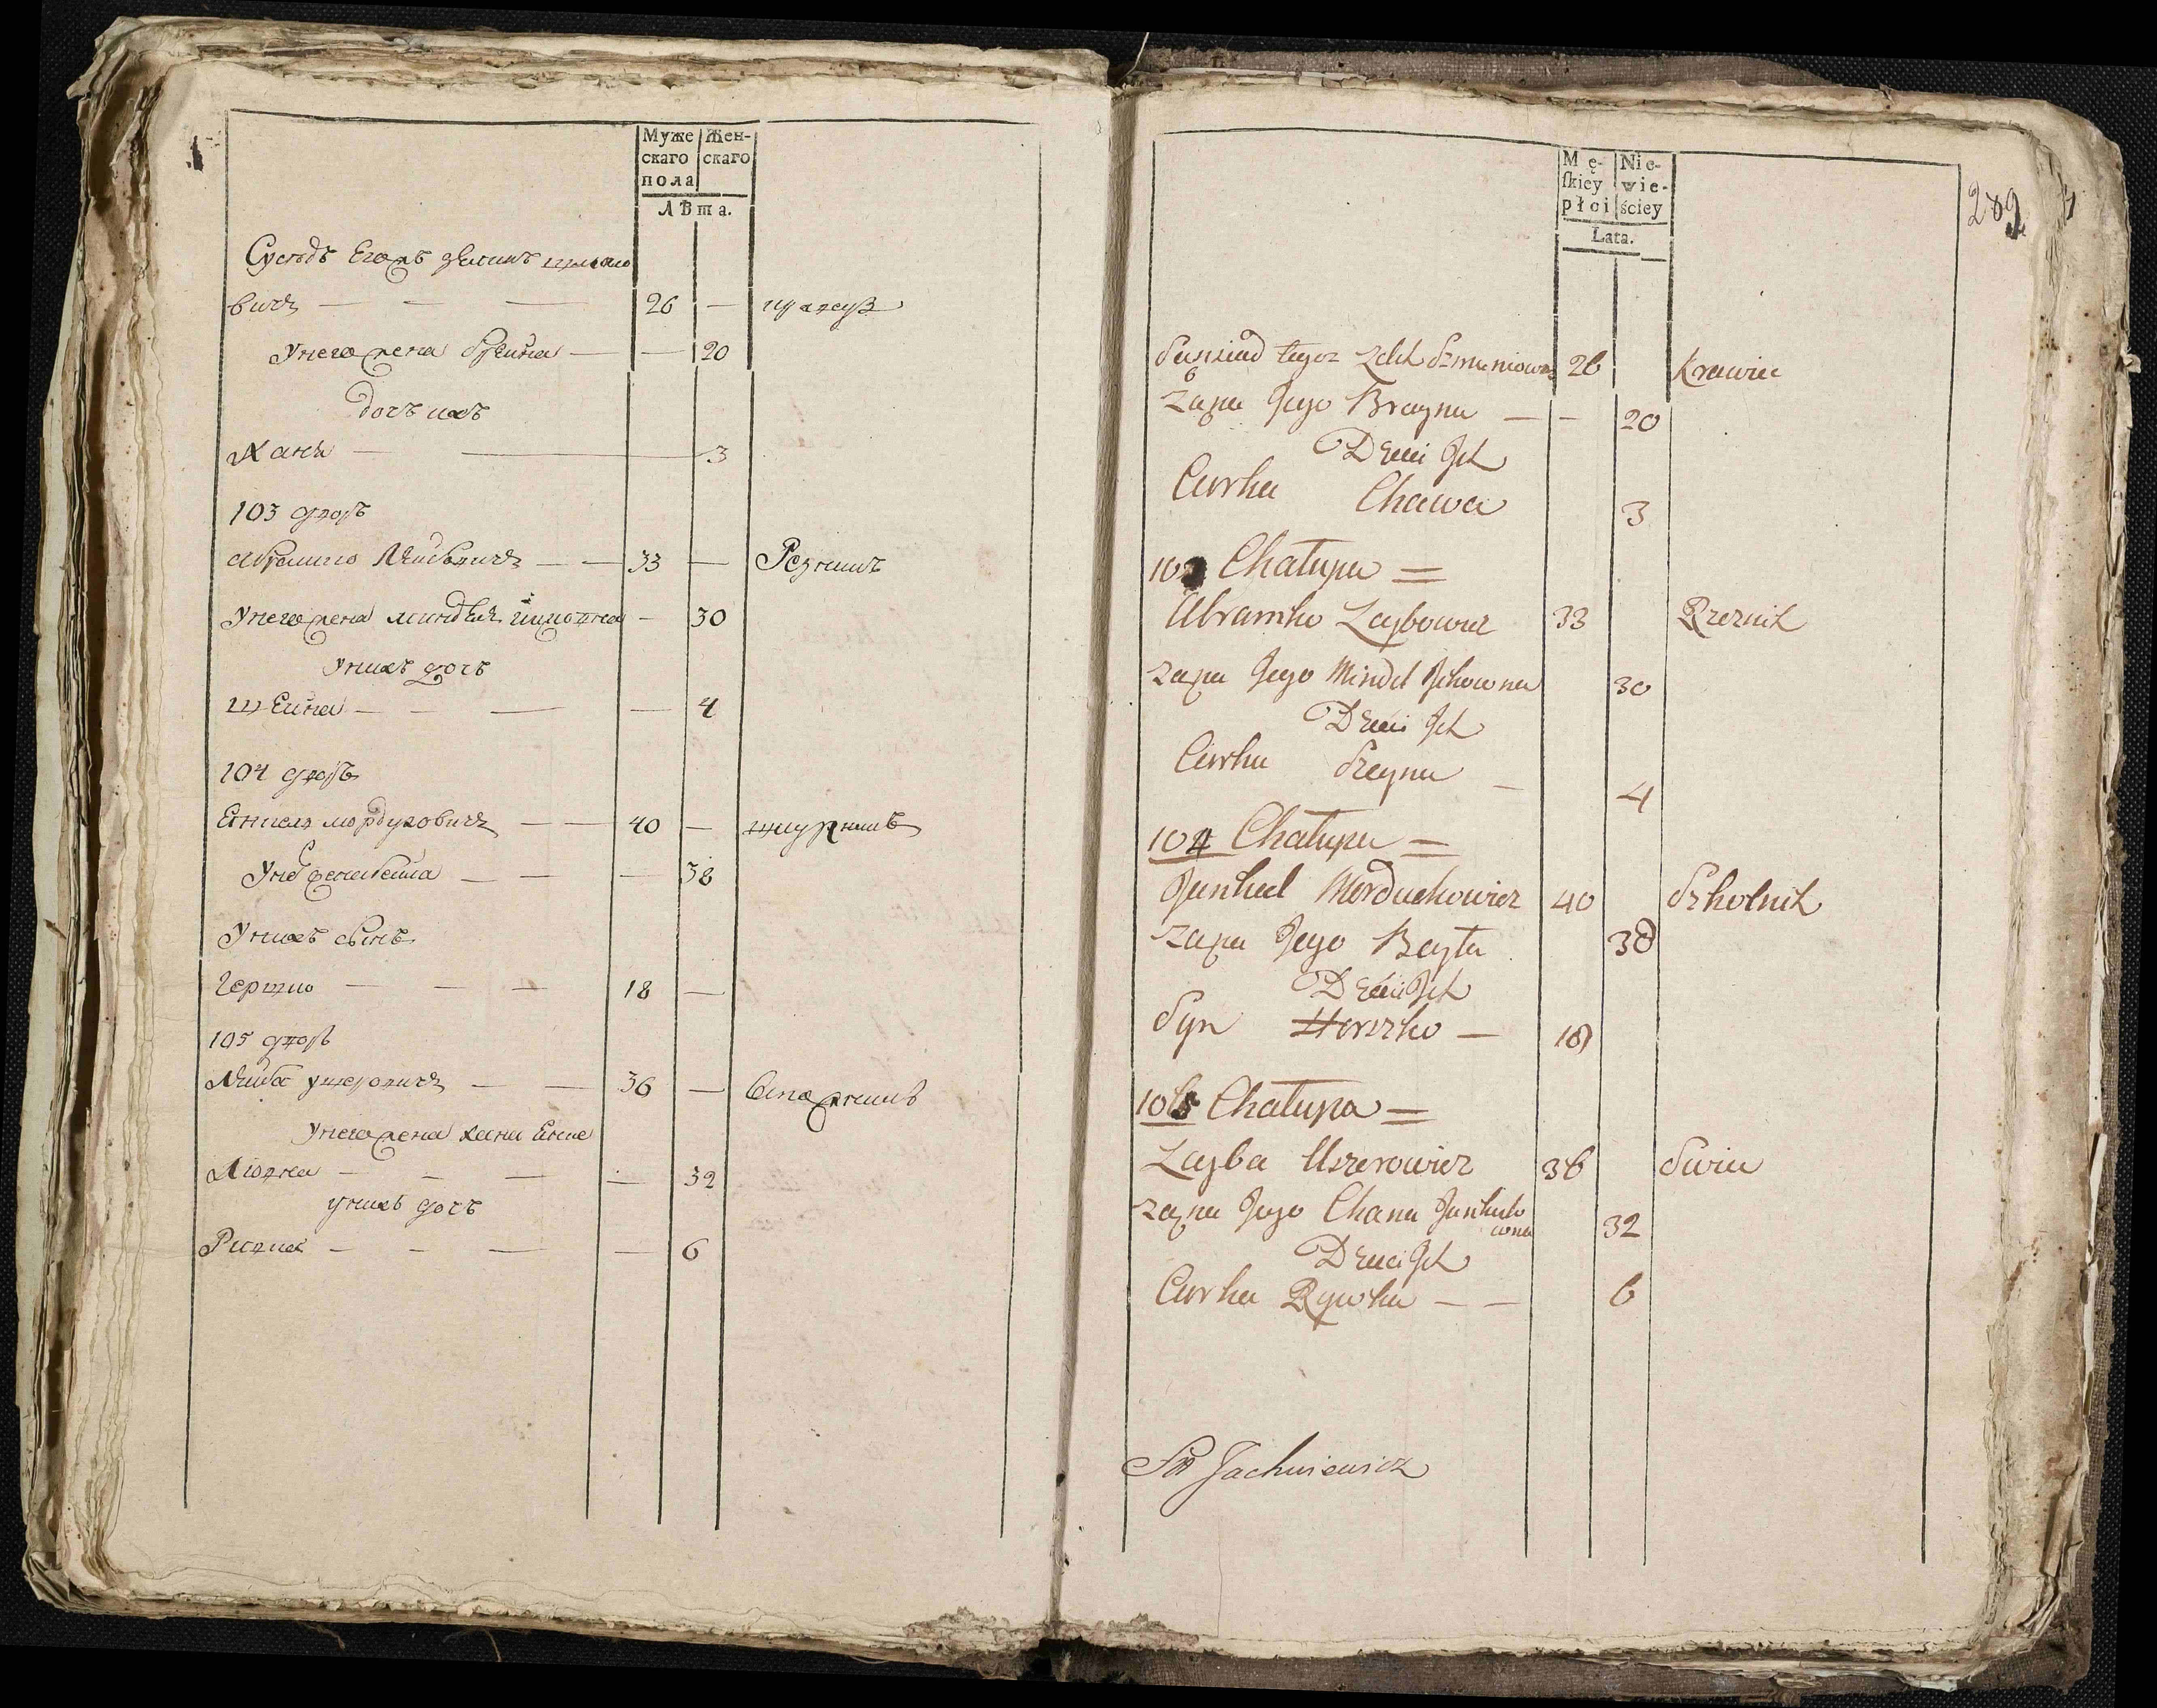 Муже
скаго
пола
Жен-
скаго
Лѣта.
Суседъ Егожъ
вичъ — — — 26 —
Унего жена Брейна — — 20
дочъ ихъ
Хана — — 3
103 дворъ
Абрамко Лейбовичъ — — 33 — Резникъ
Унего жена Миндля Ицковна — 30
Унихъ дочъ
Шейна — — — — 4
104 дворъ
Енкель Мордуховичъ — — 40 — школникъ
Унего жена Бейла — — — 38
Унихъ сынъ
Гершко — — — 18 —
105 дворъ
Лейба Ушеровичъ — — 36 —
Унего жена Хана Енке
Лювна — — — — 32
унихъ дочъ
Ривка — — — — 6
Mę-
skiey
płci
Nie-
wie-
ściey
Lata.
289
Sąsiad tegoz Zelik 26 Krawiec
Żona Jego Brayna — — 20
Dzieci Ich
Curka Chawa 3
103 Chałupa =
Abramko Leybowicz 33 Rzeznik
Żona Jego Mindel Ickowna 30
Dzieci Ich
Curka Szeyna — 4
104 Chałupa =
Jankiel Morduchowicz 40 Szkolnik
Żona Jego Beyła 38
Dzieci Ich
Syn Herszko — 18
105 Chałupa =
Leyba Uszerowicz 36
Żona Jego Chana Jankielo
wna 32
Dzieci Ich
Curka Rywka — — 6
Jachniewicz